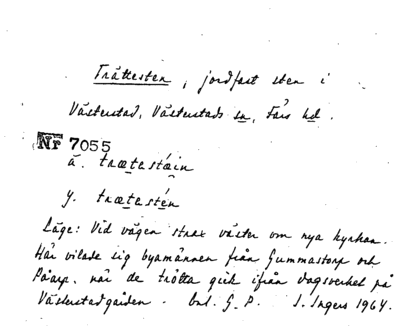 Trättesten, jordfast sten i
Västerstad, Västerstads sn, Färs hd.
Nr 7055
ä. trætastáin
y. trætastén
Läge: Vid vägen strax väster om nya kyrkan.
Här vilade sig byamännen från Gummastorp och
Påarp, när de trötta gick ifrån dagsverket på
Västerstadgården. Enl. G. P. I. Ingers 1964.